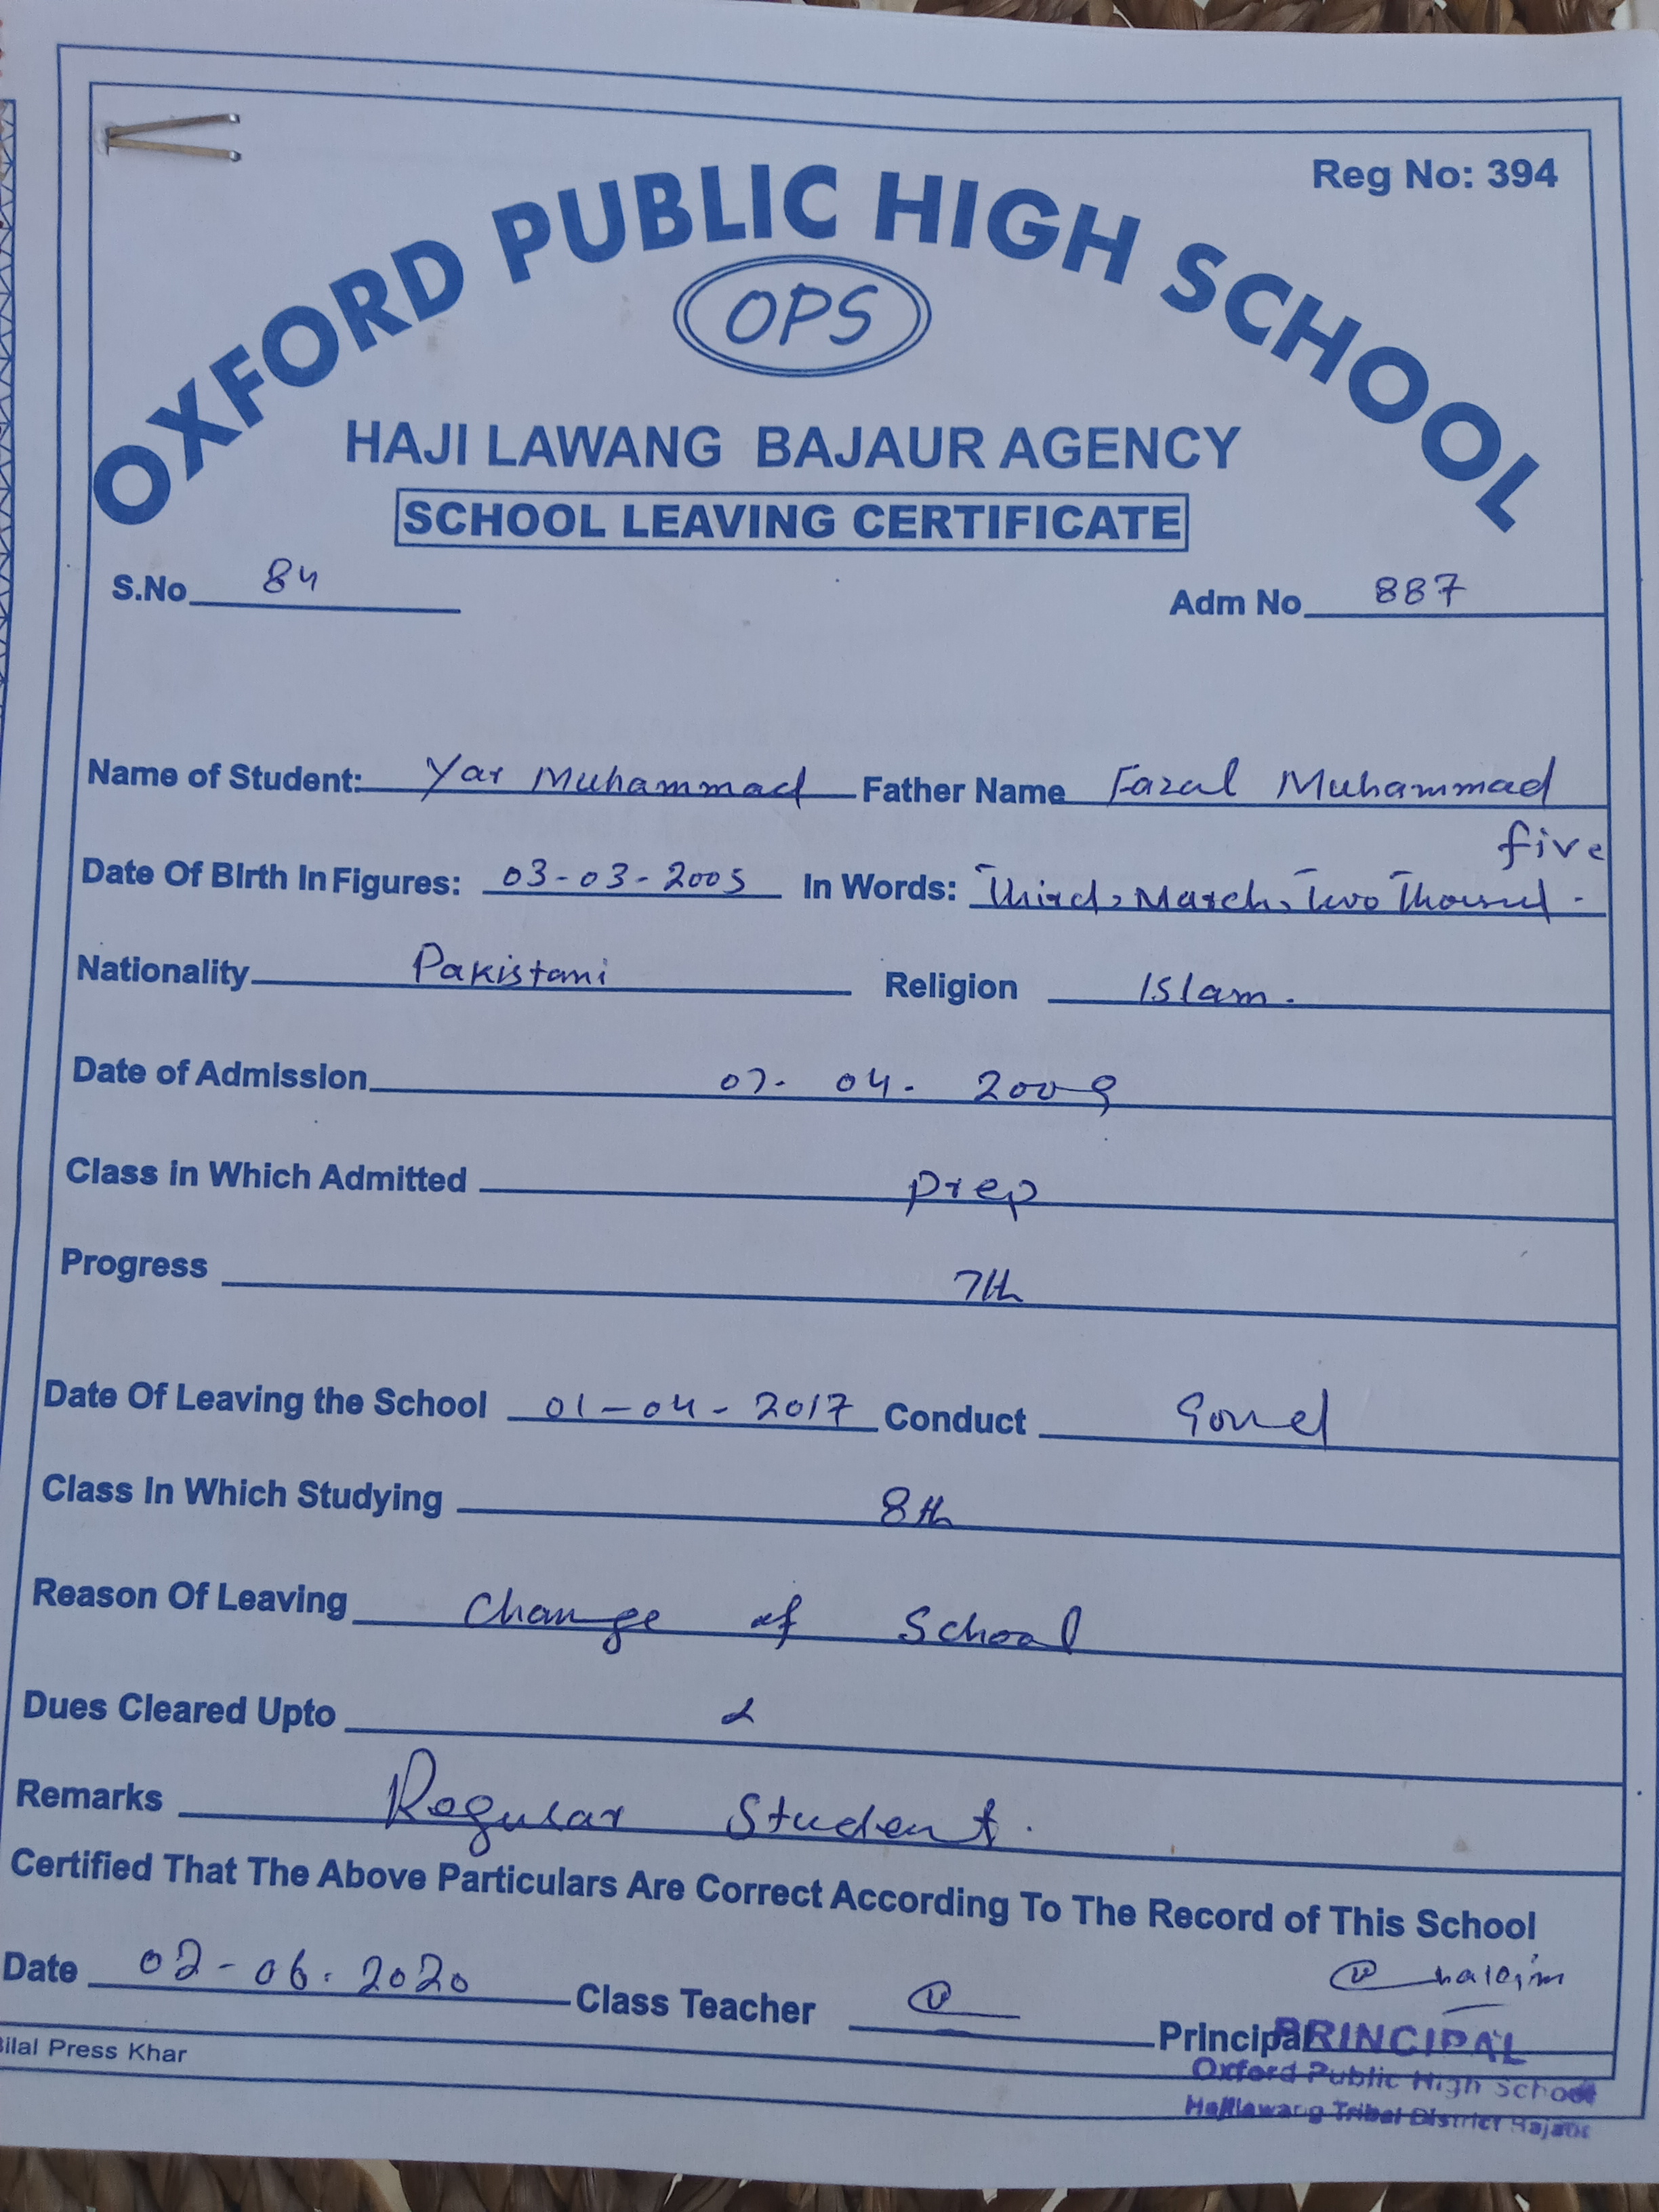 Reg No: 394
OXFORD PUBLIC HIGH SCHOOL
OPS
HAJI LAWANG BAJAUR AGENCY
SCHOOL LEAVING CERTIFICATE
S.No 84 Adm No 887
Name of Student: Yar Muhammad Father Name Fazal Muhammad
five
Date Of Birth In Figures: 03-03-2005 In Words: Third, March, Two Thousand.
Nationality Pakistani Religion Islam.
Date of Admission 07. 04. 2009
Class in Which Admitted prep
Progress 7th
Date Of Leaving the School 01-04-2017 Conduct Good
Class In Which Studying 8th
Reason Of Leaving Change of School
Dues Cleared Upto
Remarks Regular Student.
Certified That The Above Particulars Are Correct According To The Record of This School
Date 02-06.2020 Class Teacher Principal
PRINCIPAL
Oxford Public High School
Hajilawang Tribal District Bajaur
Bilal Press Khar